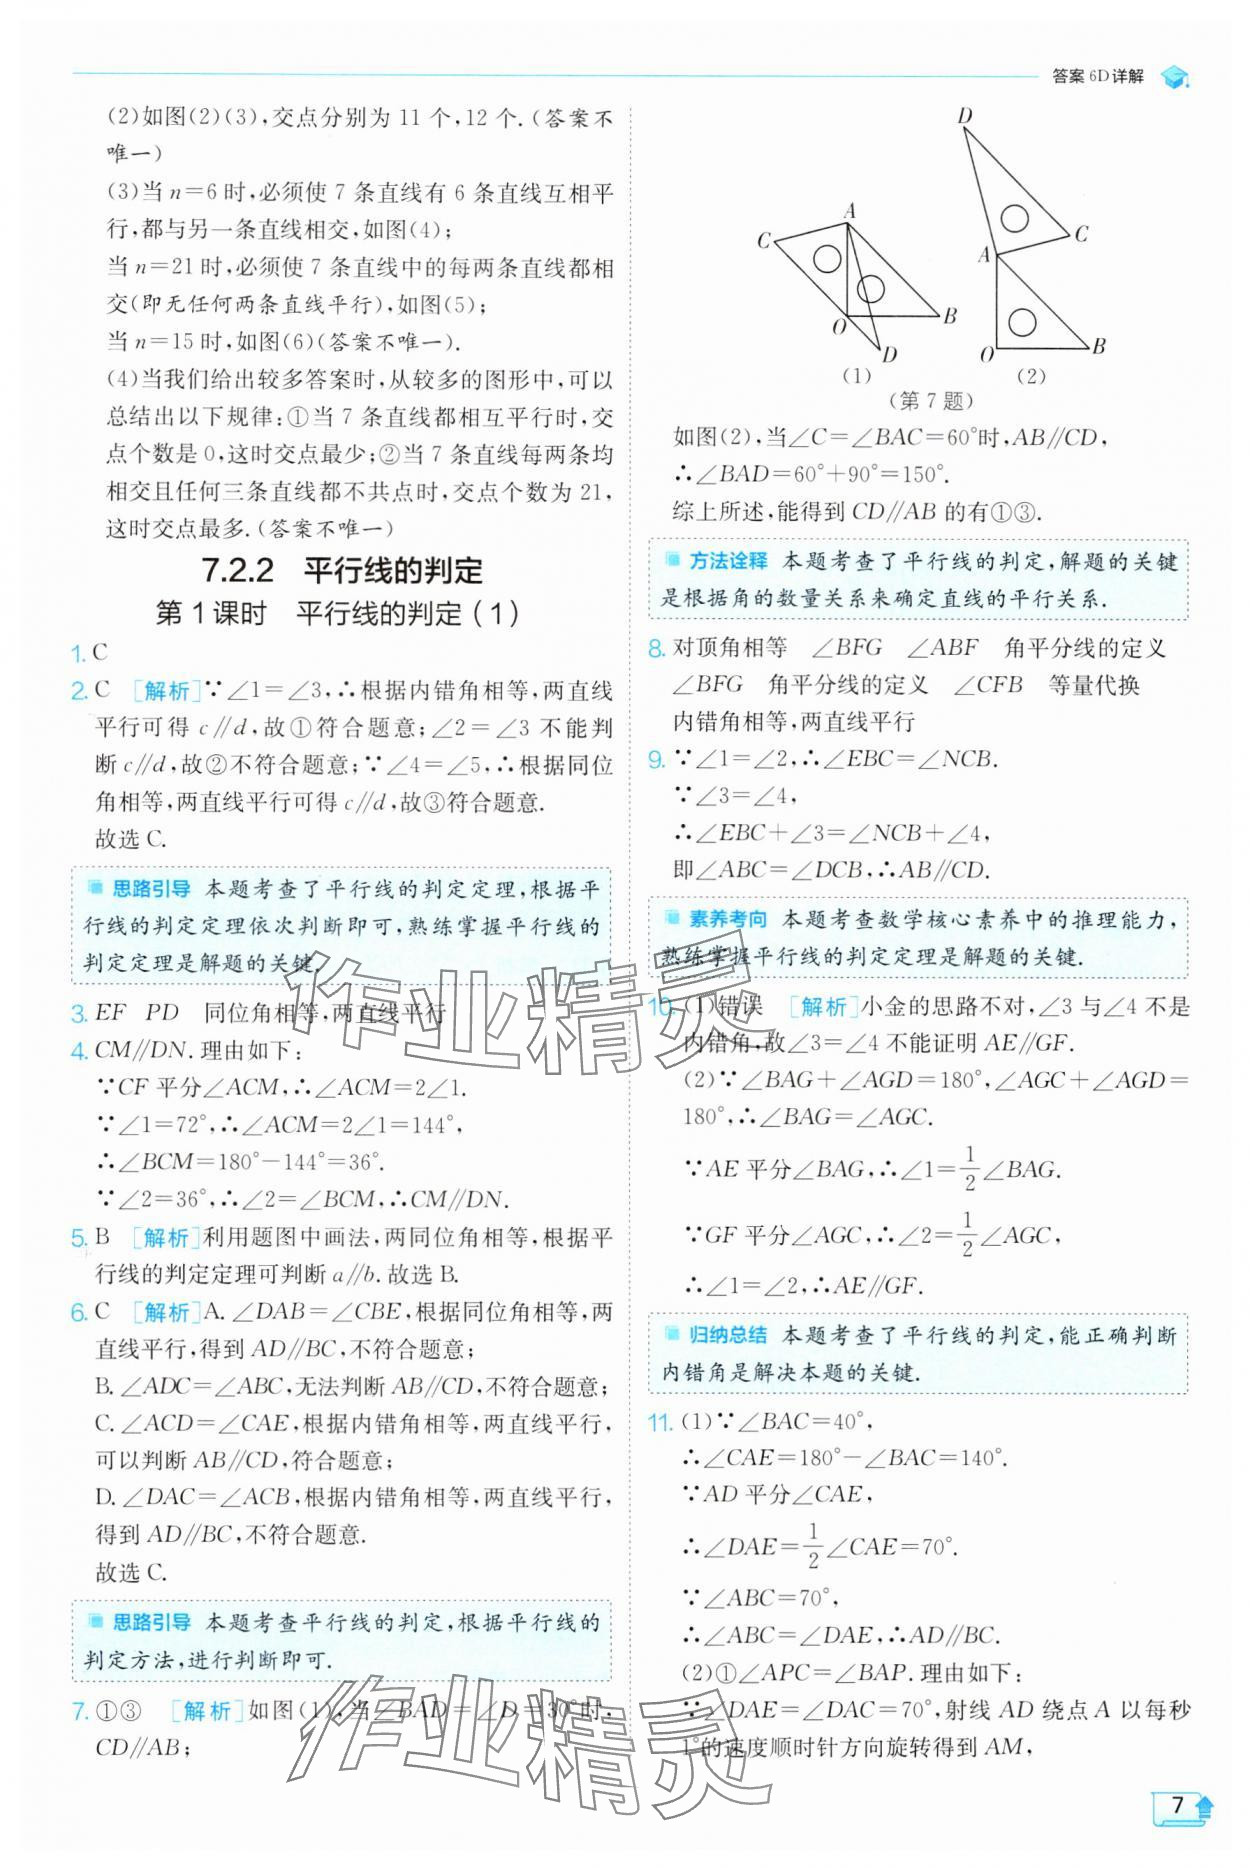 答案 6D详解
(2)如图(2)(3),交点分别为11个,12个.(答案不
唯一)
(3)当n=6时,必须使7条直线有6条直线互相平
行,都与另一条直线相交,如图(4);
当n=21时,必须使7条直线中的每两条直线都相
交(即无任何两条直线平行),如图(5);
当n=15时,如图(6)(答案不唯一).
(4)当我们给出较多答案时,从较多的图形中,可以
总结出以下规律:①当7条直线都相互平行时,交
点个数是0,这时交点最少;②当7条直线每两条均
相交且任何三条直线都不共点时,交点个数为21,
这时交点最多.(答案不唯一)
7.2.2 平行线的判定
第1课时 平行线的判定(1)
1. C
2. C [解析]∵∠1=∠3,∴根据内错角相等,两直线
平行可得c∥d,故①符合题意;∠2=∠3不能判
断c∥d,故②不符合题意;∵∠4=∠5,∴根据同位
角相等,两直线平行可得c∥d,故③符合题意.
故选C.
思路引导 本题考查了平行线的判定定理,根据平
行线的判定定理依次判断即可,熟练掌握平行线的
判定定理是解题的关键.
3. EF PD 同位角相等,两直线平行
4. CM∥DN.理由如下:
∵CF平分∠ACM,∴∠ACM=2∠1.
∵∠1=72°,∴∠ACM=2∠1=144°,
∴∠BCM=180°-144°=36°.
∵∠2=36°,∴∠2=∠BCM,∴CM∥DN.
5. B [解析]利用题图中画法,两同位角相等,根据平
行线的判定定理可判断a∥b.故选B.
6. C [解析]A.∠DAB=∠CBE,根据同位角相等,两
直线平行,得到AD∥BC,不符合题意;
B.∠ADC=∠ABC,无法判断AB∥CD,不符合题意;
C.∠ACD=∠CAE,根据内错角相等,两直线平行,
可以判断AB∥CD,符合题意;
D.∠DAC=∠ACB,根据内错角相等,两直线平行,
得到AD∥BC,不符合题意.
故选C.
思路引导 本题考查平行线的判定,根据平行线的
判定方法,进行判断即可.
7. ①③ [解析]如图(1),当∠BAD=∠D=30°时,
CD∥AB;
D
C
A
B
O
A
C
O
B
D
(1) (2)
(第7题)
如图(2),当∠C=∠BAC=60°时,AB∥CD,
∴∠BAD=60°+90°=150°.
综上所述,能得到CD∥AB的有①③.
方法诠释 本题考查了平行线的判定,解题的关键
是根据角的数量关系来确定直线的平行关系.
8. 对顶角相等 ∠BFG ∠ABF 角平分线的定义
∠BFG 角平分线的定义 ∠CFB 等量代换
内错角相等,两直线平行
9. ∵∠1=∠2,∴∠EBC=∠NCB.
∵∠3=∠4,
∴∠EBC+∠3=∠NCB+∠4,
即∠ABC=∠DCB,∴AB∥CD.
素养考向 本题考查数学核心素养中的推理能力,
熟练掌握平行线的判定定理是解题的关键.
10. (1)错误 [解析]小金的思路不对,∠3与∠4不是
内错角,故∠3=∠4不能证明AE∥GF.
(2)∵∠BAG+∠AGD=180°,∠AGC+∠AGD=
180°,∴∠BAG=∠AGC.
∵AE平分∠BAG,∴∠1=1/2∠BAG.
∵GF平分∠AGC,∴∠2=1/2∠AGC,
∴∠1=∠2,∴AE∥GF.
归纳总结 本题考查了平行线的判定,能正确判断
内错角是解决本题的关键.
11. (1)∵∠BAC=40°,
∴∠CAE=180°-∠BAC=140°.
∵AD平分∠CAE,
∴∠DAE=1/2∠CAE=70°.
∵∠ABC=70°,
∴∠ABC=∠DAE,∴AD∥BC.
(2)①∠APC=∠BAP.理由如下:
∵∠DAE=∠DAC=70°,射线AD绕点A以每秒
1°的速度顺时针方向旋转得到AM,
7
作业精灵
作业精灵